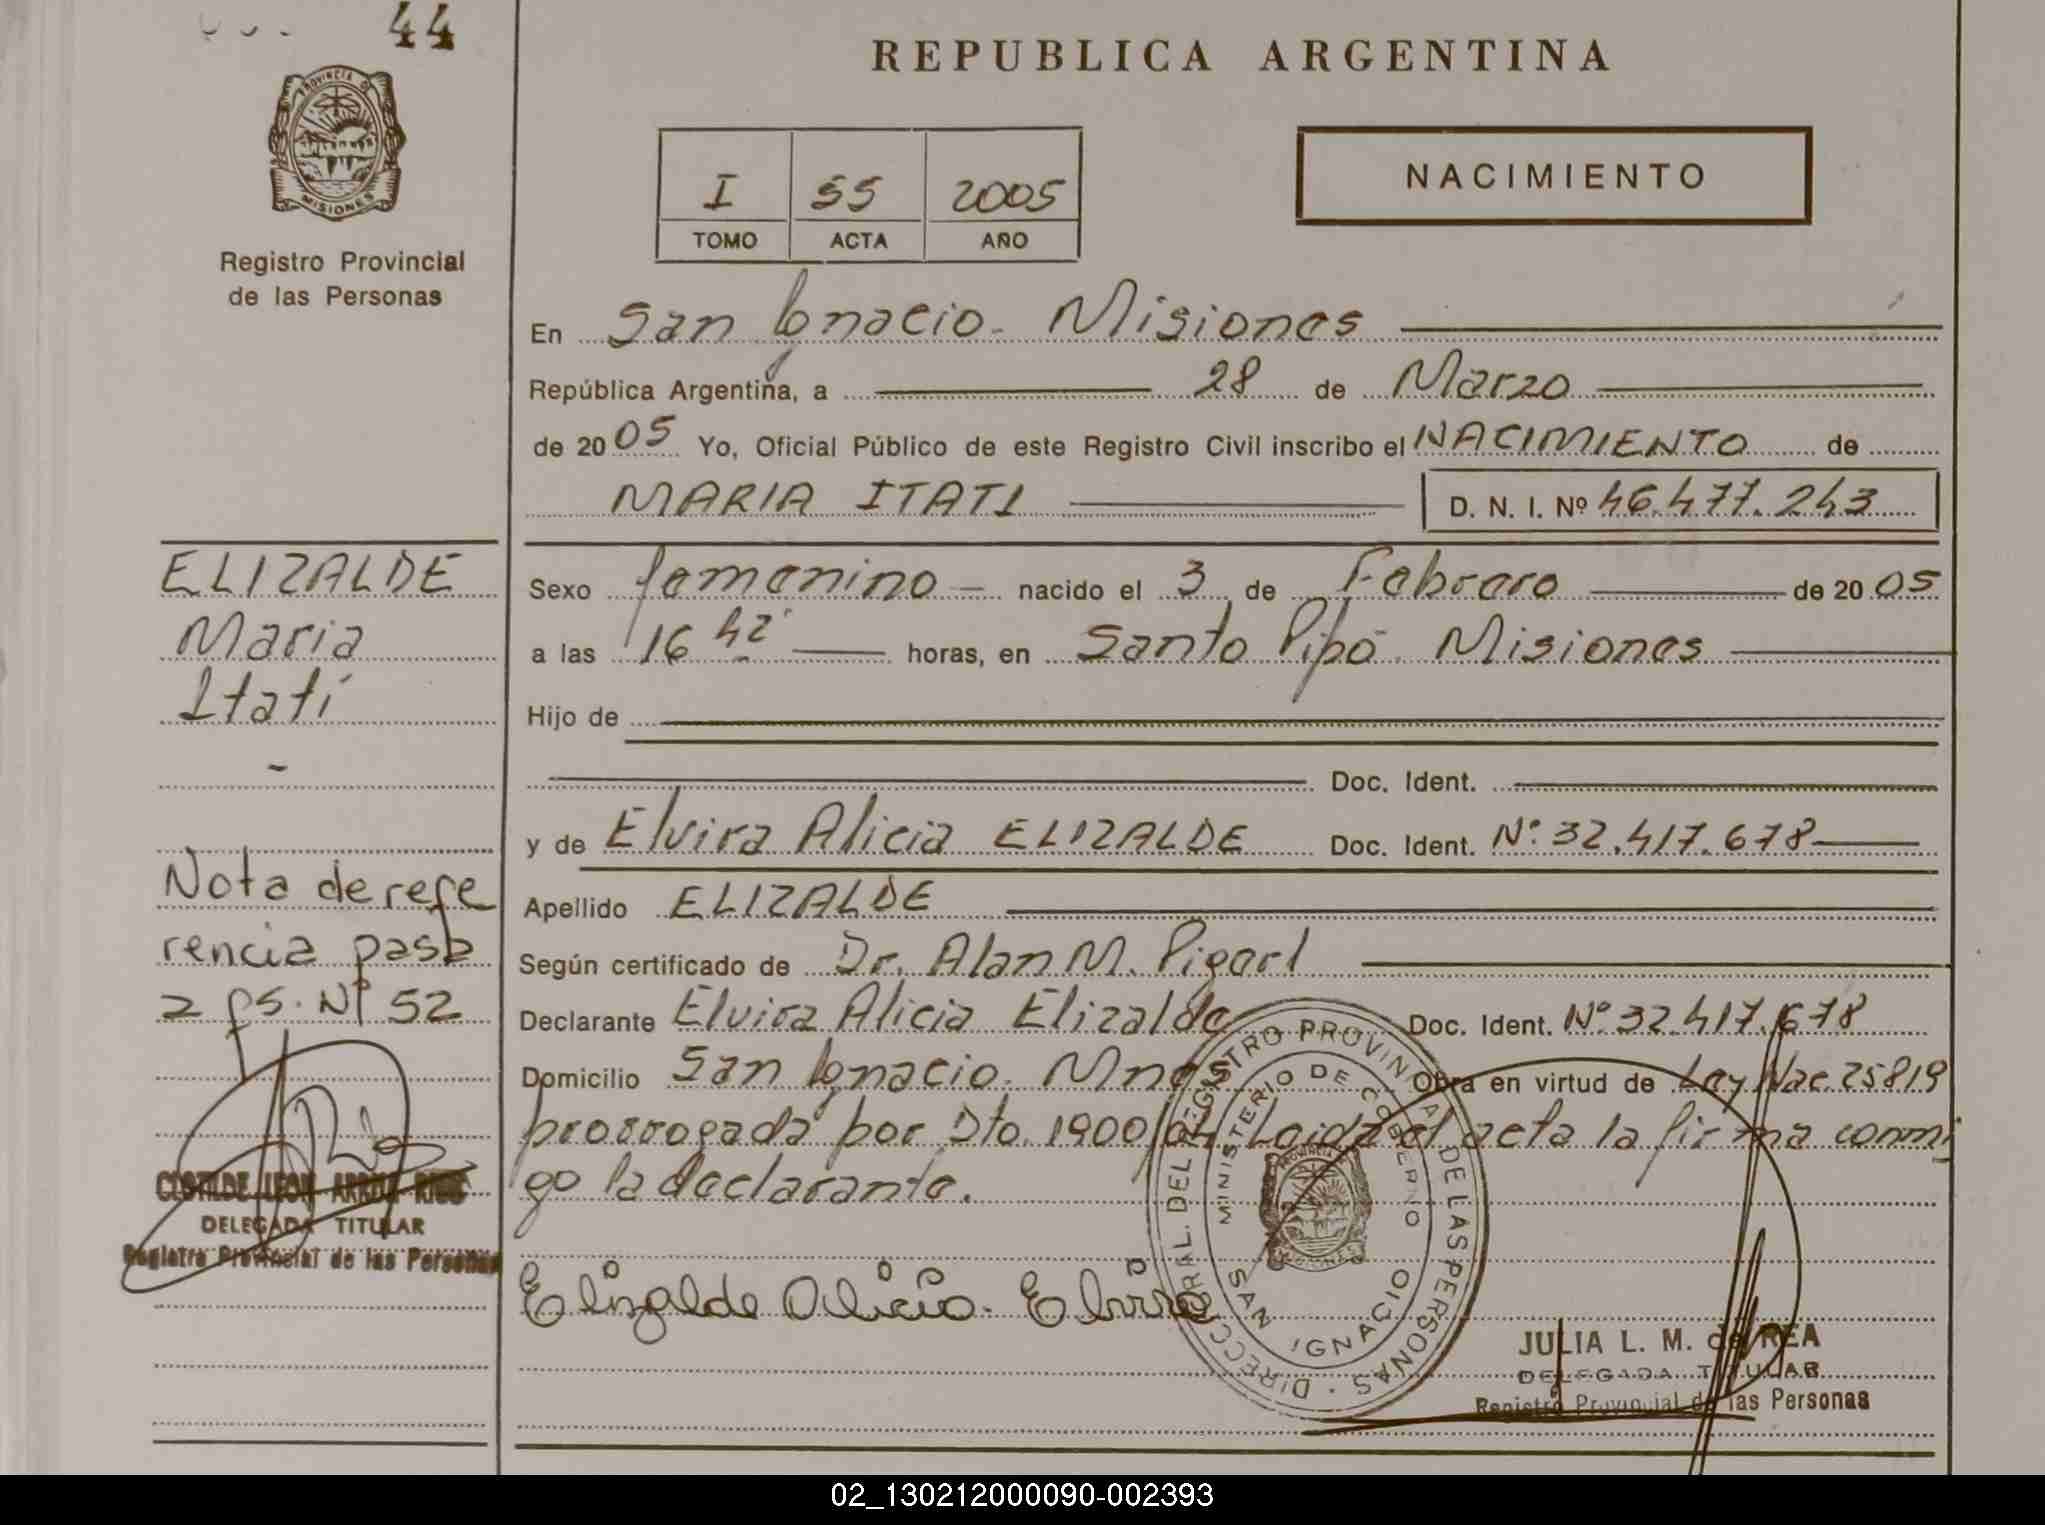 44
REPUBLICA ARGENTINA
PROVINCIA DE
MISIONES
Registro Provincial
de las Personas
I 55 2005
TOMO ACTA AÑO
NACIMIENTO
En San Ignacio - Misiones
República Argentina, a 28 de Marzo
de 2005 Yo, Oficial Público de este Registro Civil inscribo el NACIMIENTO de
MARIA ITATI D. N. I. Nº 46.477.243
ELIZALDE
Maria
Itatí
-
Sexo femenino - nacido el 3 de Febrero de 2005
a las 16 hs horas, en Santo Pipó - Misiones
Hijo de
Doc. Ident.
y de Elvira Alicia ELIZALDE Doc. Ident. Nº 32.417.678
Apellido ELIZALDE
Según certificado de Dr. Alan M.
Declarante Elvira Alicia Elizalde Doc. Ident. Nº 32.417.678
Domicilio San Ignacio - Mnes Obra en virtud de Ley Nac. 25819
prorrogada por Dto. 1900/04 Leida el acta la firma conmi
go la declarante.
Elizalde Alicia. Elvira
Nota de refe
rencia pasa
a fs. Nº 52
CLOTILDE LEON
DELEGADA TITULAR
Registro Provincial de las Personas
DIRECC. GRAL. DEL REGISTRO PROVINCIAL DE LAS PERSONAS
MINISTERIO DE GOBIERNO
SAN IGNACIO
JULIA L. M. de REA
DELEGADA TITULAR
Registro Provincial de las Personas
02_130212000090-002393